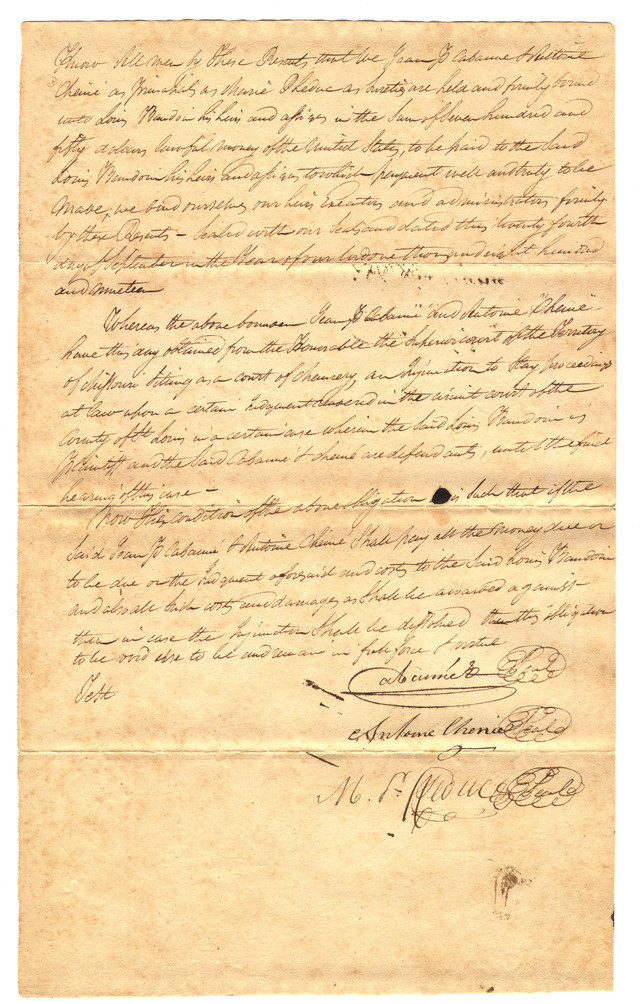 Know All men by these Presents that we Jean P Cabanné & Antoine
Chenie as Principals as Marie P Leduc as sureties are held and firmly bound
unto Louis Baudoin his heirs and assigns in the Sum of Seven hundred and
fifty dolears lawful money of the United States, to be paid to the Said
Louis Baudoin his heirs and assigns to which payment well and truly to be
made, we bind ourselves our heirs Executors and administrators firmly
by these Presents — Sealed with our Seals and dated this twenty fourth
day of September in the Year of our lord one thousand eight hundred
and nineteen
Whereas the above bounden Jean P Cabanné and Antoine Chenie
have this day obtained from the Honorable the Superior court of the Territory
of Missouri sitting as a court of Chancery, an Injunction to Stay proceedings
at law upon a certain Judgment in the circuit court of the
County of St Louis in a certain case wherein the said Louis Baudoin is
Plaintiff and the Said Cabanné & chenie are defendants, until the final
hearing of this case —
Now the condition of the above obligation is Such that if the
Said Jean P Cabanné & Antoine Chenie Shall pay all the money due or
to be due on the Judgment aforesaid and costs to the Said Louis Baudoin
and also all Such costs and damages as Shall be awarded against
them in case the Injunction Shall be disolved then this obligation
to be void else to be and remain in full force & virtue
Test
Cabanné Seal
Antoine Chenie Seal
M. P. Leduc Seal